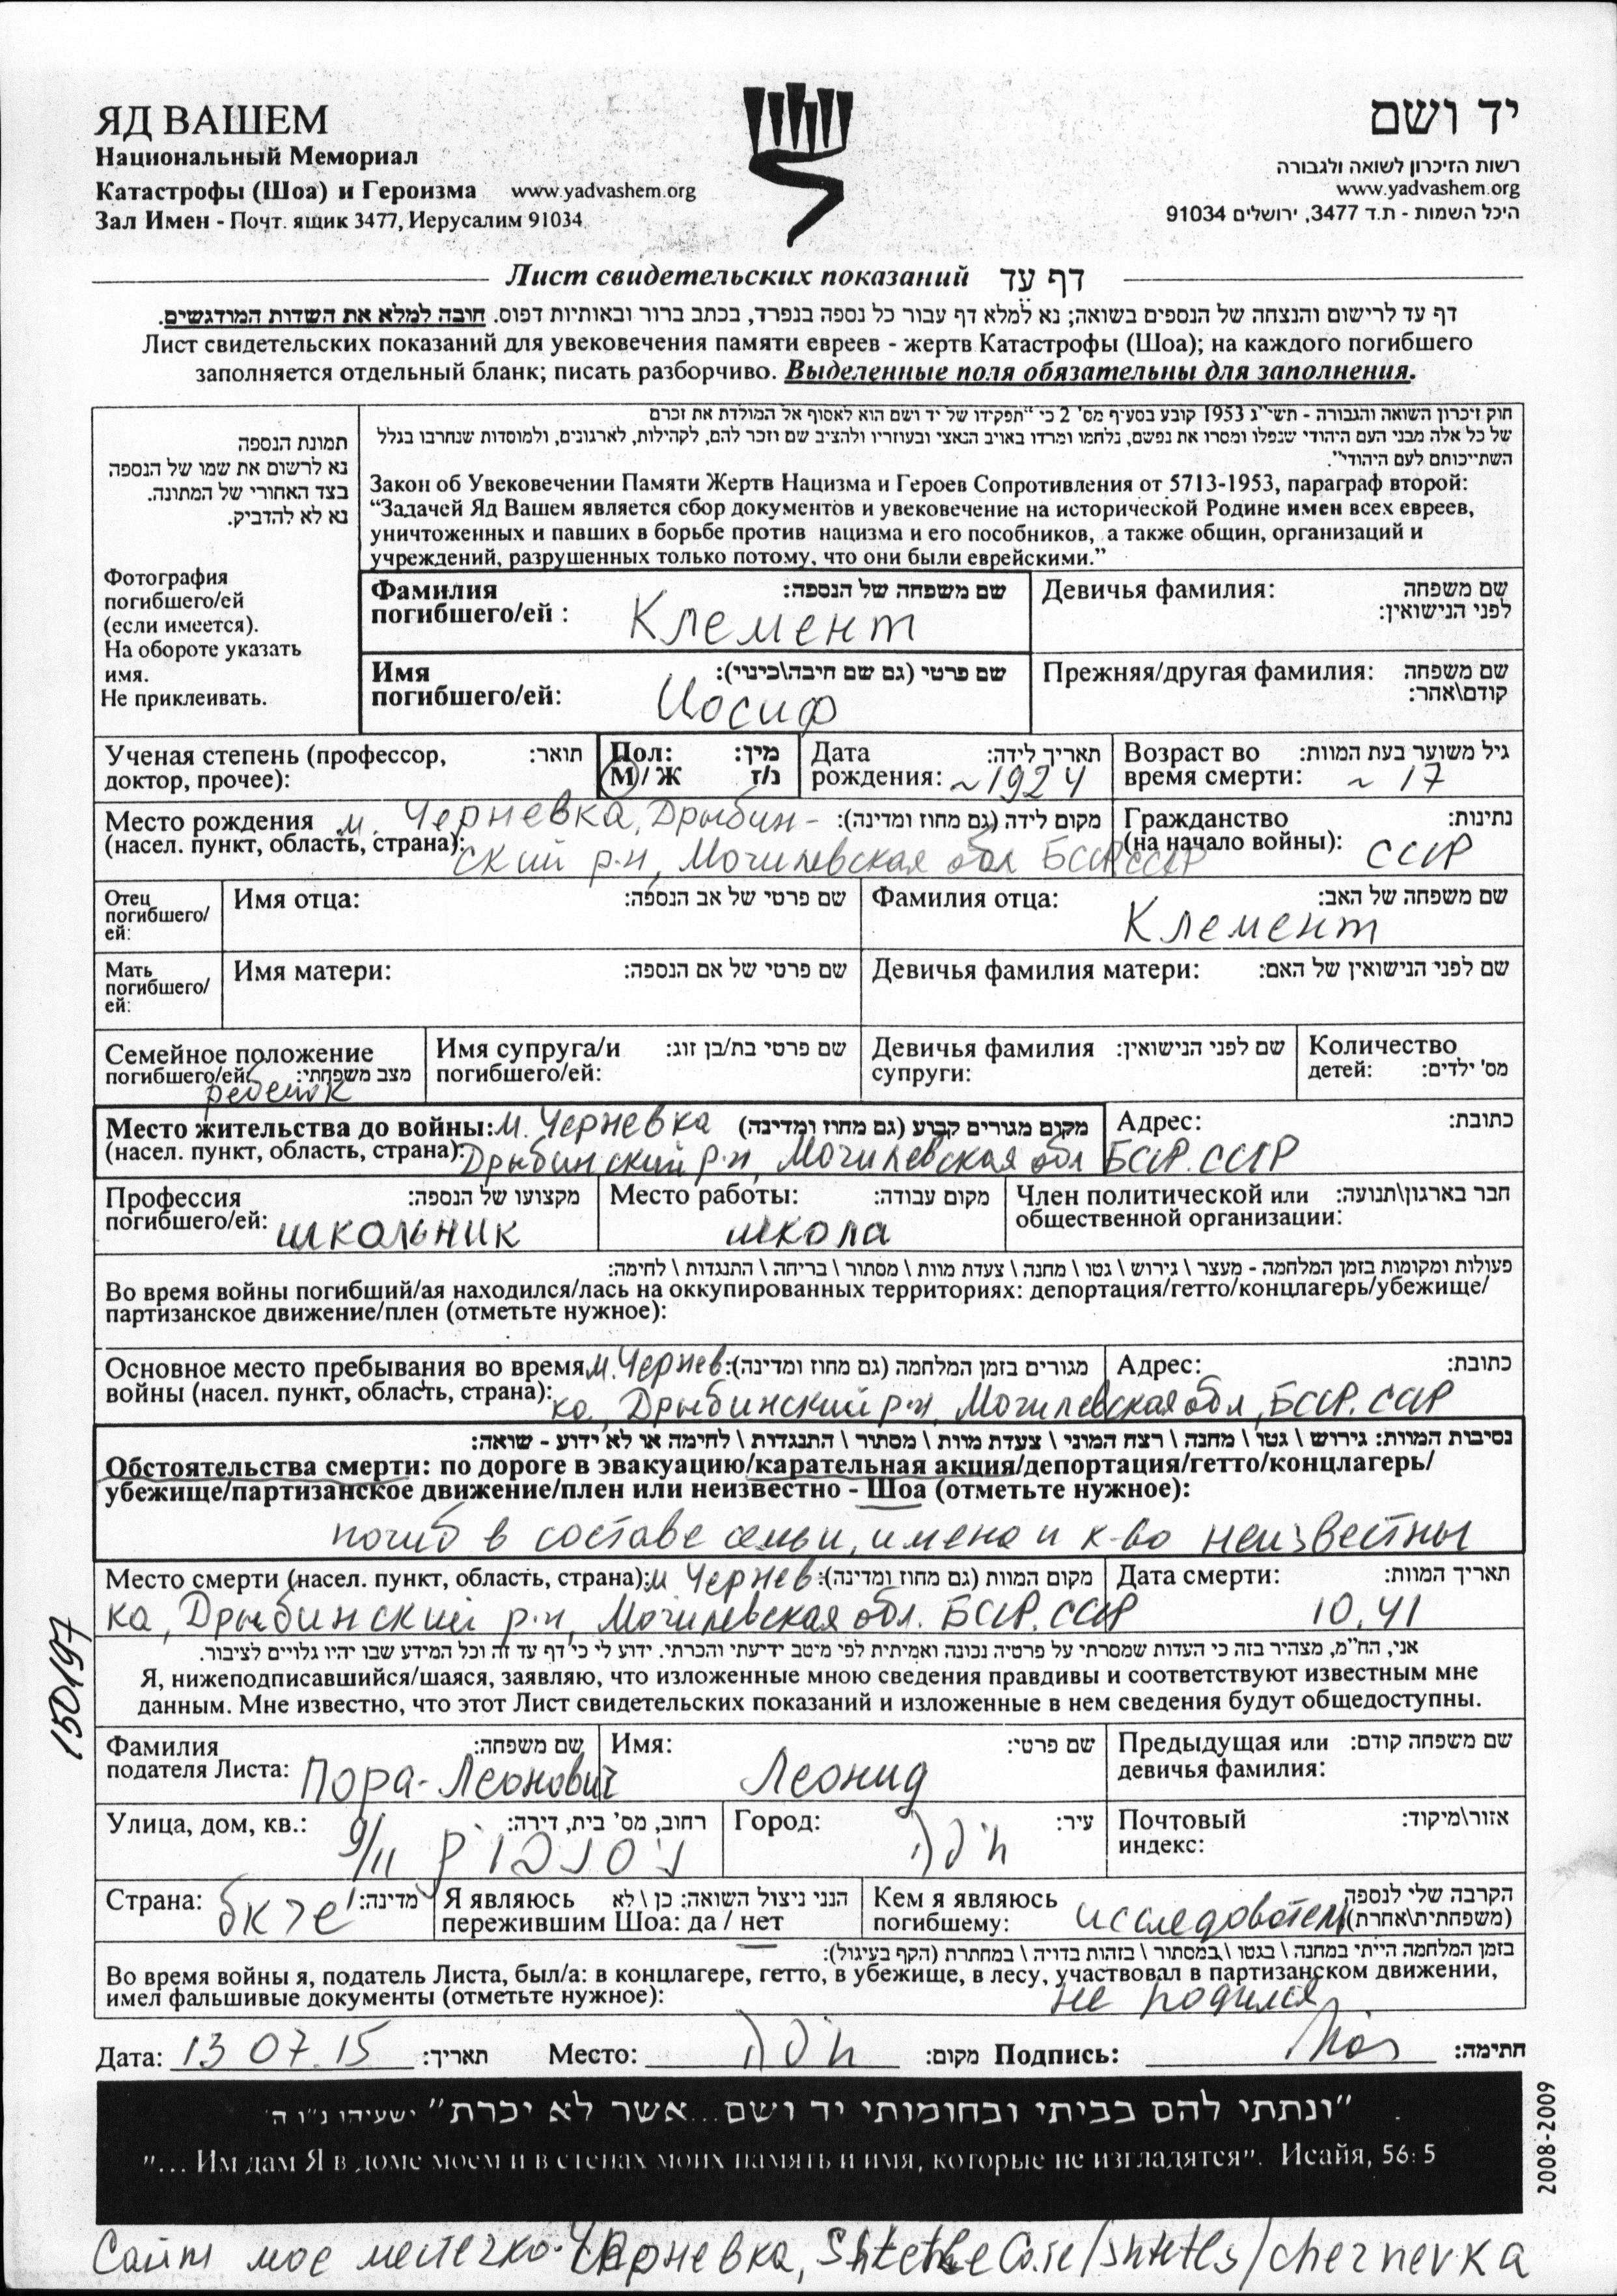 ЯД ВАШЕМ
Национальный Мемориал
Катастрофы (Шоа) и Героизма www.yadvashem.org
Зал Имен - Почт. ящик 3477, Иерусалим 91034
יד ושם
רשות הזיכרון לשואה ולגבורה
www.yadvashem.org
היכל השמות - ת.ד 3477, ירושלים 91034
Лист свидетельских показаний דף עד
דף עד לרישום והנצחה של הנספים בשואה; נא למלא דף עבור כל נספה בנפרד, בכתב ברור ובאותיות דפוס. חובה למלא את השדות המודגשים.
Лист свидетельских показаний для увековечения памяти евреев - жертв Катастрофы (Шоа); на каждого погибшего
заполняется отдельный бланк; писать разборчиво. Выделенные поля обязательны для заполнения.
תמונת הנספה
נא לרשום את שמו של הנספה
בצד האחורי של המתונה.
נא לא להדביק.
Фотография
погибшего/ей
(если имеется).
На обороте указать
имя.
Не приклеивать.
חוק זיכרון השואה והגבורה - תשי"ג 1953 קובע בסעיף מס' 2 כי "תפקידו של יד ושם הוא לאסוף אל המולדת את זכרם
של כל אלה מבני העם היהודי שנפלו ומסרו את נפשם, נלחמו ומרדו באויב הנאצי ובעוזריו ולהציב שם וזכר להם, לקהילות, לארגונים, ולמוסדות שנחרבו בגלל
השתייכותם לעם היהודי".
Закон об Увековечении Памяти Жертв Нацизма и Героев Сопротивления от 5713-1953, параграф второй:
“Задачей Яд Вашем является сбор документов и увековечение на исторической Родине имен всех евреев,
уничтоженных и павших в борьбе против нацизма и его пособников, а также общин, организаций и
учреждений, разрушенных только потому, что они были еврейскими.”
Фамилия שם משפחה של הנספה:
погибшего/ей : Клемент
Девичья фамилия: שם משפחה
לפני הנישואין:
Имя שם פרטי (גם שם חיבה\כינוי):
погибшего/ей: Иосиф
Прежняя/другая фамилия: שם משפחה
קודם\אחר:
Ученая степень (профессор, תואר:
доктор, прочее):
Пол: מין:
М / Ж ז/נ
Дата תאריך לידה:
рождения: ~1924
Возраст во גיל משוער בעת המוות:
время смерти: ~ 17
Место рождения м. Черневка, Дрыбин- מקום לידה (גם מחוז ומדינה):
(насел. пункт, область, страна): ский р-н, Могилевская обл БССР СССР
Гражданство נתינות:
(на начало войны): СССР
Отец
погибшего/
ей:
Имя отца: שם פרטי של אב הנספה:
Фамилия отца: שם משפחה של האב:
Клемент
Мать
погибшего/
ей:
Имя матери: שם פרטי של אם הנספה:
Девичья фамилия матери: שם לפני הנישואין של האם:
Семейное положение
погибшего/ей: מצב משפחתי:
ребенок
Имя супруга/и שם פרטי בת/בן זוג:
погибшего/ей:
Девичья фамилия שם לפני הנישואין:
супруги:
Количество
детей: מס' ילדים:
Место жительства до войны: м. Черневка מקום מגורים קבוע (גם מחוז ומדינה)
(насел. пункт, область, страна): Дрыбинский р-н, Могилевская обл БССР. СССР
Адрес: כתובת:
Профессия מקצועו של הנספה:
погибшего/ей: школьник
Место работы: מקום עבודה:
школа
Член политической или חבר בארגון\תנועה:
общественной организации:
פעולות ומקומות בזמן המלחמה - מעצר \ גירוש \ גטו \ מחנה \ צעדת מוות \ מסתור \ בריחה \ התנגדות \ לחימה:
Во время войны погибший/ая находился/лась на оккупированных территориях: депортация/гетто/концлагерь/убежище/
партизанское движение/плен (отметьте нужное):
Основное место пребывания во время м. Чернев- מגורים בזמן המלחמה (גם מחוז ומדינה):
войны (насел. пункт, область, страна): ка, Дрыбинский р-н, Могилевская обл, БССР. СССР
Адрес: כתובת:
נסיבות המוות: גירוש \ גטו \ מחנה \ רצח המוני \ צעדת מוות \ מסתור \ התנגדות \ לחימה או לא ידוע - שואה:
Обстоятельства смерти: по дороге в эвакуацию/карательная акция/депортация/гетто/концлагерь/
убежище/партизанское движение/плен или неизвестно - Шоа (отметьте нужное):
погиб в составе семьи, имена и к-во неизвестны
Место смерти (насел. пункт, область, страна): м Чернев- מקום המוות (גם מחוז ומדינה):
ка, Дрыбинский р-н, Могилевская обл. БССР. СССР
Дата смерти: תאריך המוות:
10.41
אני, הח"מ, מצהיר בזה כי העדות שמסרתי על פרטיה נכונה ואמיתית לפי מיטב ידיעתי והכרתי. ידוע לי כי דף עד זה וכל המידע שבו יהיו גלויים לציבור.
Я, нижеподписавшийся/шаяся, заявляю, что изложенные мною сведения правдивы и соответствуют известным мне
данным. Мне известно, что этот Лист свидетельских показаний и изложенные в нем сведения будут общедоступны.
150197
Фамилия שם משפחה:
подателя Листа: Пора-Леонович
Имя: שם פרטי:
Леонид
Предыдущая или שם משפחה קודם:
девичья фамилия:
Улица, дом, кв.: רחוב, מס' בית, דירה:
9/11
Город: עיר:
חיפה
Почтовый אזור\מיקוד:
индекс:
Страна: מדינה:
Я являюсь הנני ניצול השואה: כן \ לא
пережившим Шоа: да / нет
Кем я являюсь הקרבה שלי לנספה
погибшему: исследователь (משפחתית\אחרת)
בזמן המלחמה הייתי במחנה \ בגטו \ במסתור \ בזהות בדויה \ במחתרת (הקף בעיגול):
Во время войны я, податель Листа, был/а: в концлагере, гетто, в убежище, в лесу, участвовал в партизанском движении,
имел фальшивые документы (отметьте нужное): не родился
Дата: 13 07.15 תאריך: Место: חיפה מקום: Подпись: חתימה:
"ונתתי להם בביתי ובחומותי יד ושם...אשר לא יכרת" ישעיהו נ"ו ה'
"... Им дам Я в доме моем и в стенах моих память и имя, которые не изгладятся". Исайя, 56: 5
2008-2009
Сайт мое местечко Черневка, /shtetls/chernevka